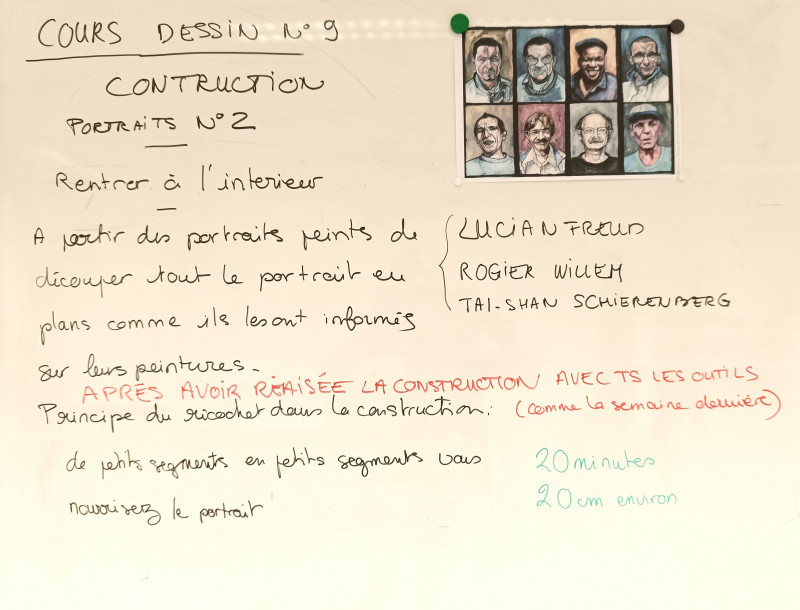 COURS DESSIN N° 9
CONTRUCTION
PORTRAITS N°2
Rentrer à l'interieur
A partir des portraits peints de
LUCIAN FREUD
ROGIER WILLEM
TAI-SHAN SCHIERENBERG
découper tout le portrait en
plans comme ils les ont informés
sur leurs peintures.
APRÈS AVOIR RÉAISÉE LA CONSTRUCTION AVEC TS LES OUTILS
(comme la semaine dernière)
Principe du ricochet dans la construction.
de petits segments en petits segments vous
nourrisez le portrait
20 minutes
20 cm environ